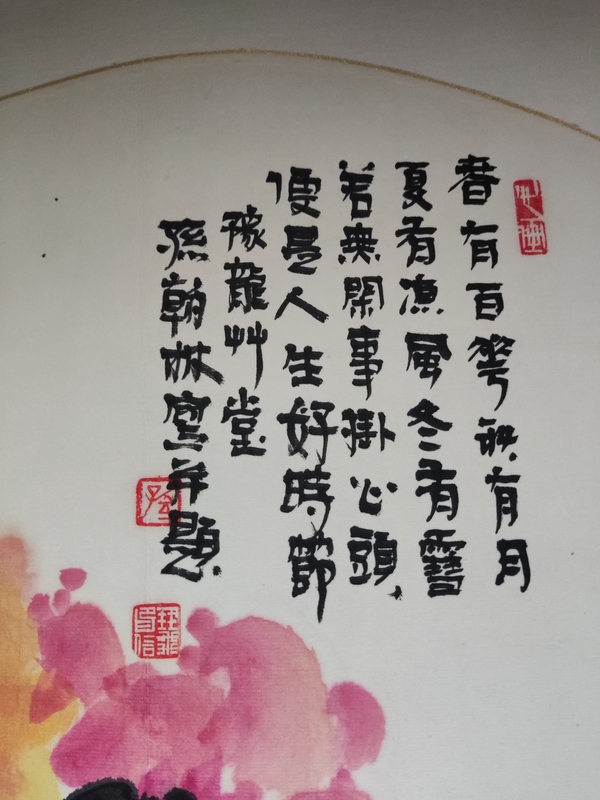 春有百花秋有月
夏有凉風冬有雪
若無閑事掛心頭
便是人生好時節
豫龍艸堂
孫翰林寫并題